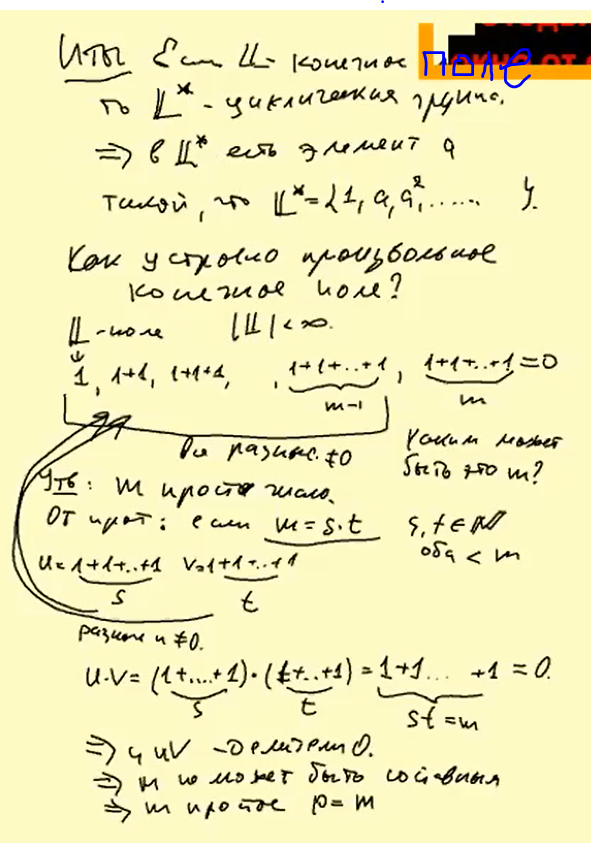 Итог Если 𝕃 - конечное поле
то 𝕃* - циклическая группа.
=> в 𝕃* есть элемент a
такой, что 𝕃* = {1, a, a², ...... }.
Как устроено произвольное
конечное поле?
𝕃 - поле |𝕃| < ∞.
1, 1+1, 1+1+1, , 1+1+..+1, 1+1+..+1 = 0
m-1 m
Все разные. ≠0
Каким может
быть это m?
Утв: m простое число.
От прот: если m = s·t s, t ∈ ℕ
оба < m
u = 1+1+..+1 v = 1+1+..+1
s t
разные и ≠0.
u·v = (1+....+1)·(1+..+1) = 1+1... +1 = 0.
s t st = m
=> u и v - делители 0.
=> m не может быть составным
=> m простое p = m